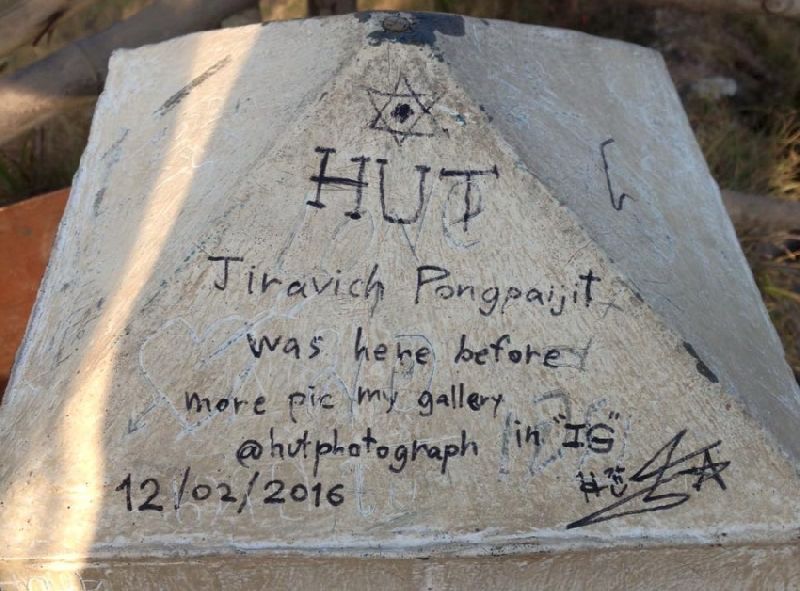 HUT
Jiravich Pongpaijit
was here before
more pic my gallery
@hutphotograph in "IG"
12/02/2016
HUT